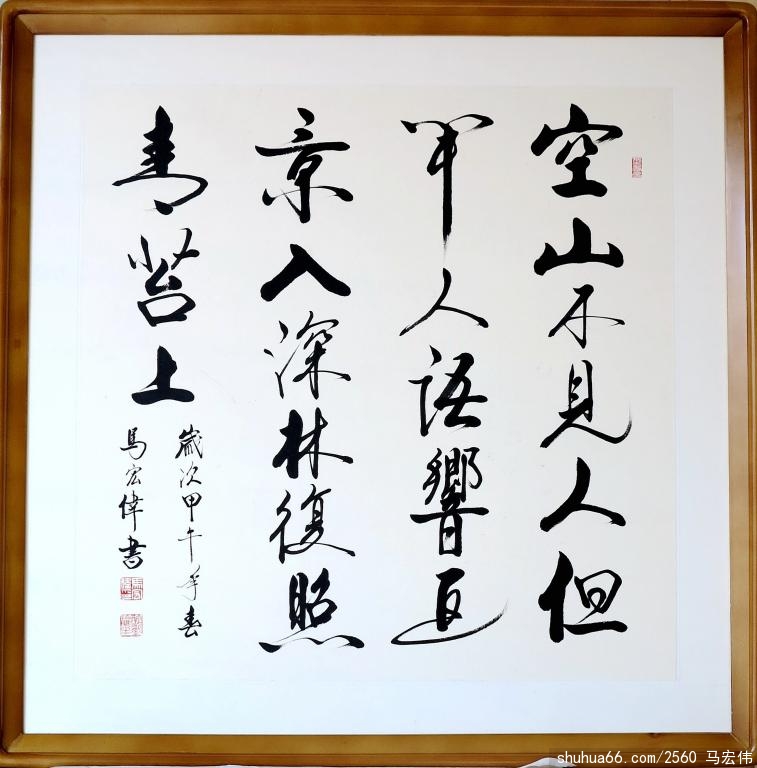 空山不見人但
聞人語響返
景入深林復照
青苔上
歲次甲午年春
馬宏偉書
shuhua66.com/2560 马宏伟